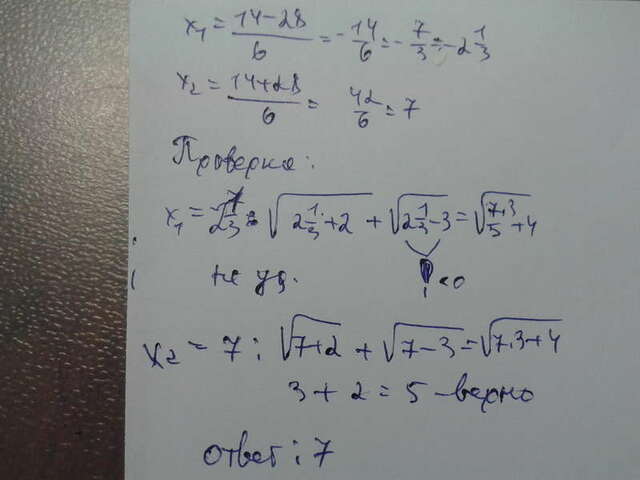 x₁ = (14-28)/6 = -14/6 = -7/3 = -2 1/3
x₂ = (14+28)/6 = 42/6 = 7
Проверка:
√(2 1/3 + 2) + √(2 1/3 - 3) =
не уд. <0
x₂ = 7 : √(7+2) + √(7-3) = √(7·3+4)
3 + 2 = 5 - верно
ответ : 7